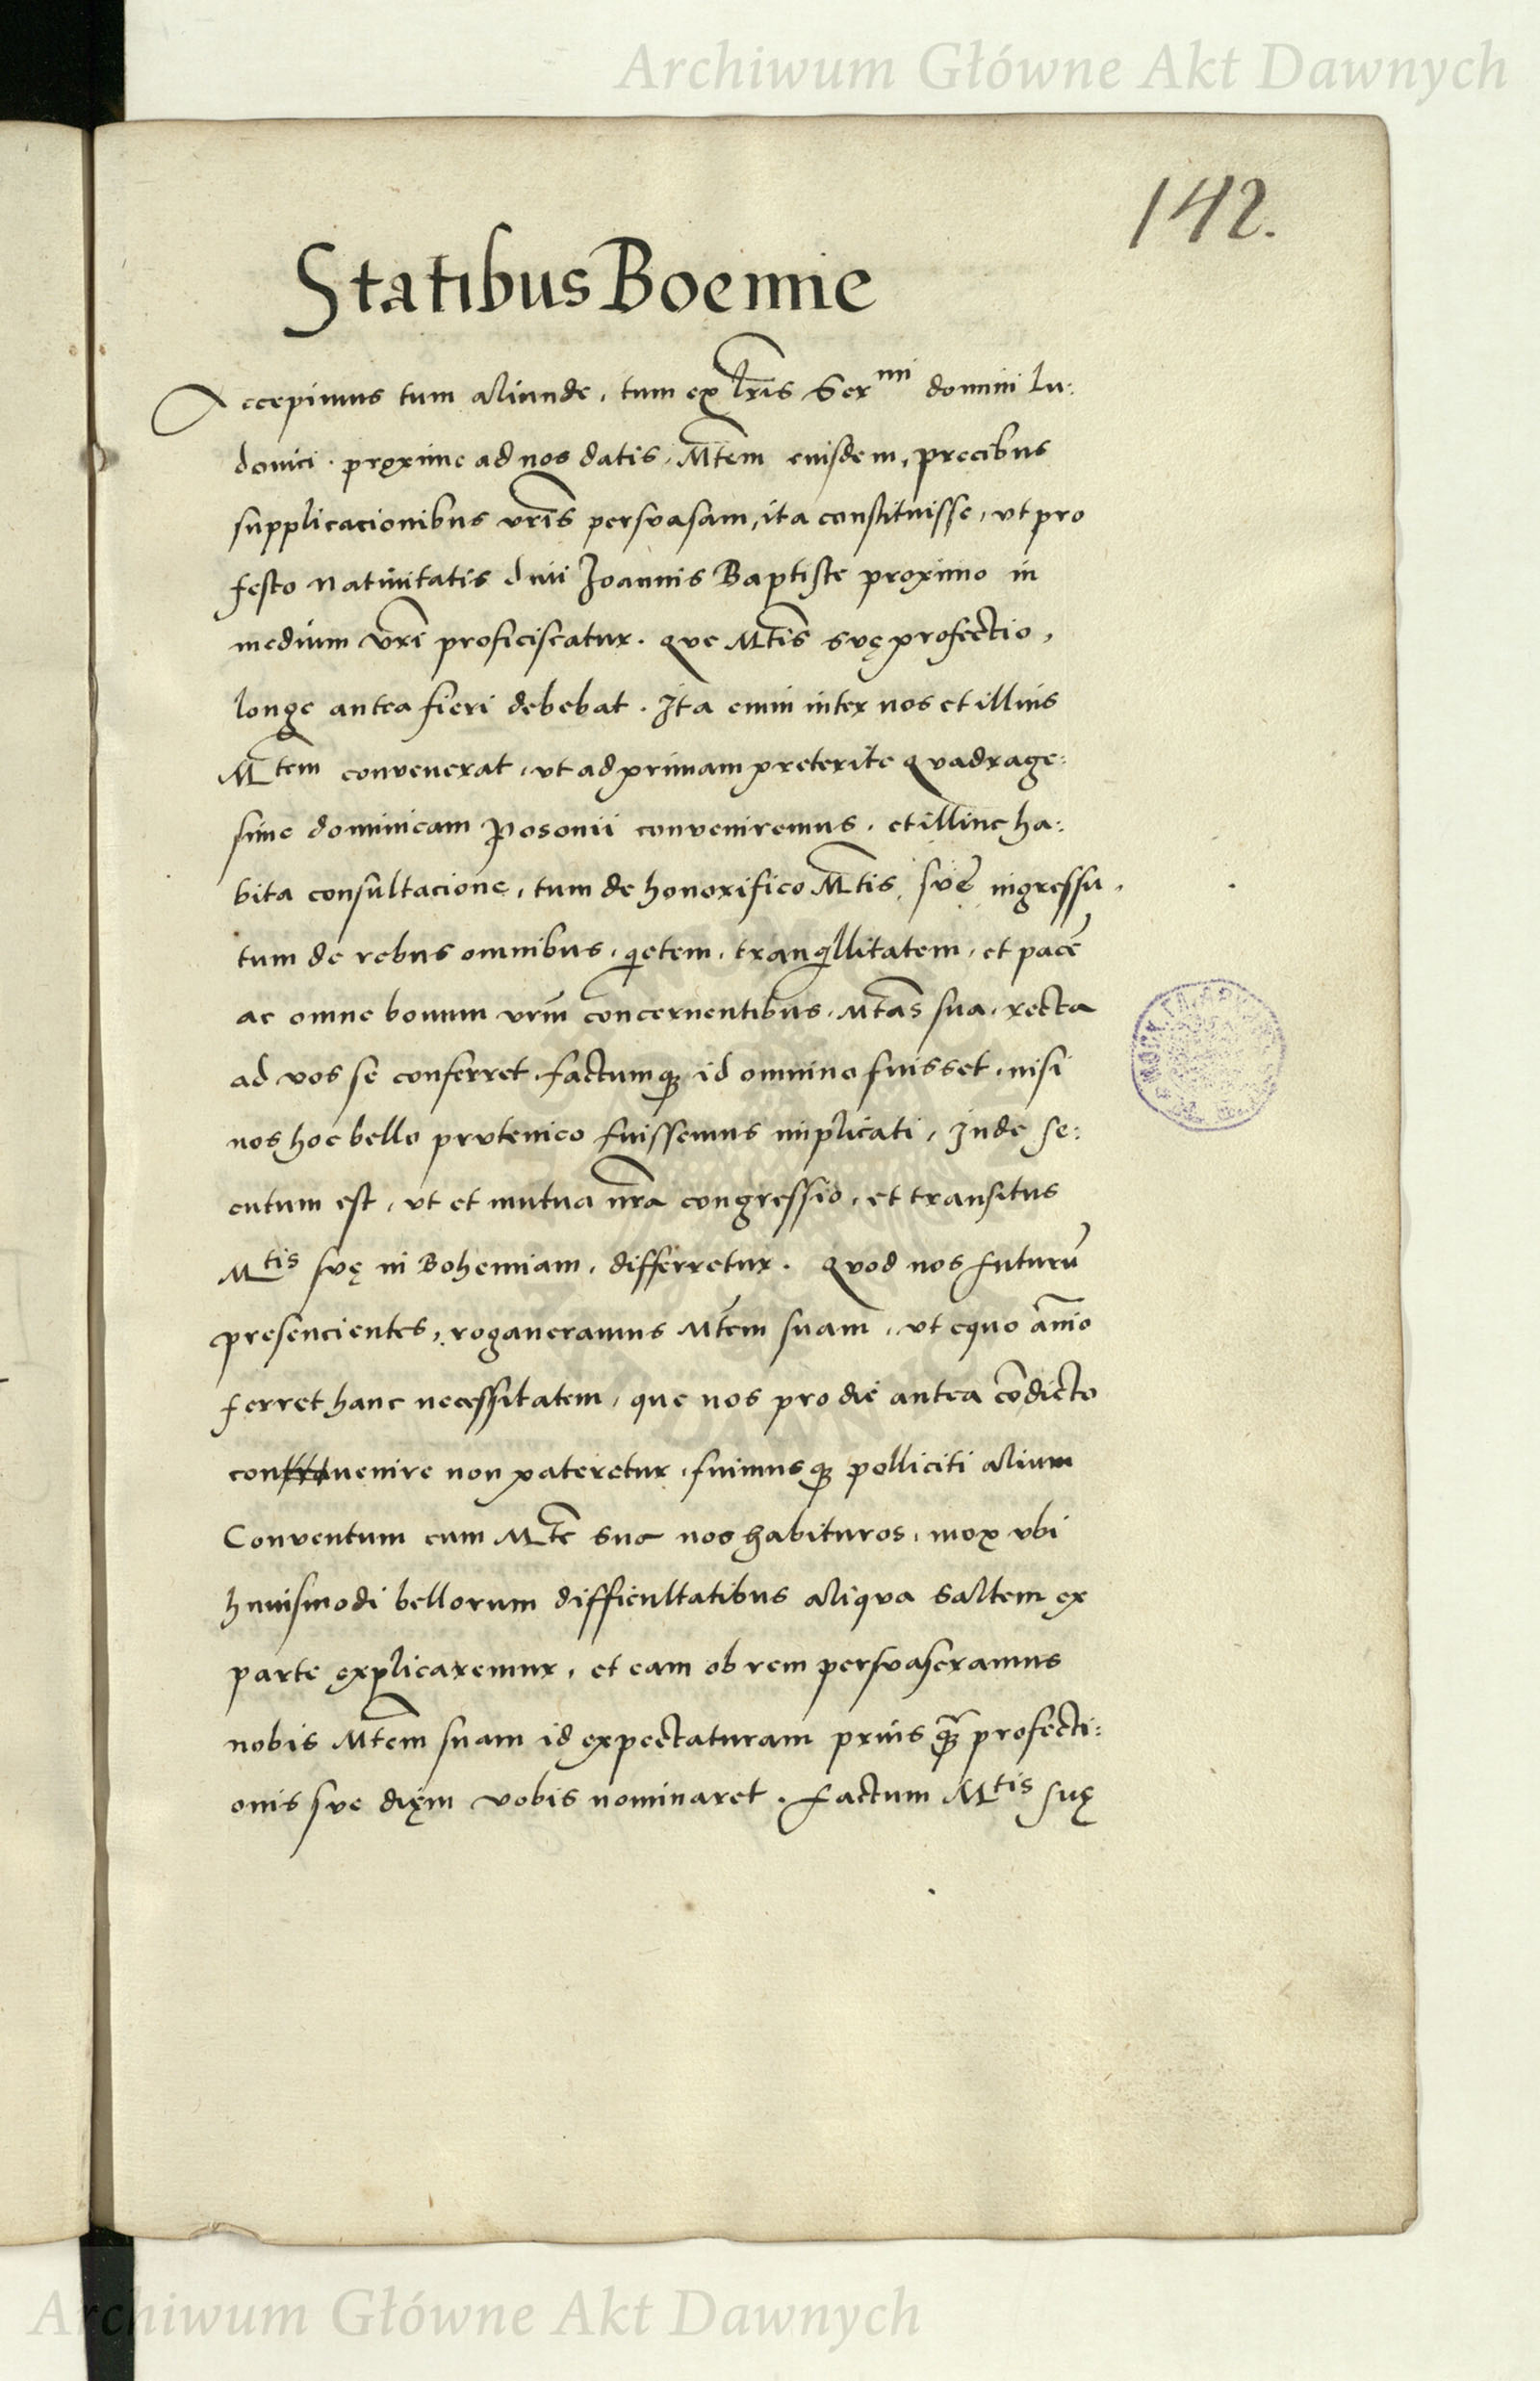 Archiwum Główne Akt Dawnych
142.
Statibus Boemie
Accepimus tum aliunde, tum ex lr̃is Ser^mi domini Lu:
douici. proxime ad nos datis, M̃tem eiusdem, precibus
supplicacionibus vr̃is persvasam, ita constituisse, vt pro
festo natiuitatis diui Joannis Baptiste proximo in
medium vr̃i proficiscatur. Que M̃tis svę profectio,
longe antea fieri debebat. Ita enim inter nos et illius
M^tem convenerat, vt ad primam preterite Qvadrage:
sime dominicam Posonii conveniremus, et illinc ha:
bita consultacione, tum de honorifico M̃tis svę ingressu,
tum de rebus omnibus, q̃etem, tranq̃llitatem, et pacẽ
ac omne bonum vrm̃ concernentibus, M̃tas sua, recta
ad vos se conferret factumq̃ id omnino fuisset, nisi
nos hoc bello prvtenico fuissemus implicati, Inde se:
cutum est, vt et mutua nr̃a congressio, et transitus
M^tis svę in Bohemiam, differretur. Qvod nos futurũ
presencientes, rogaueramus M̃tem suam, vt equo aĩo
ferret hanc necessitatem, que nos pro die antea cõdicto
convenire non pateretur, fuimusq̃ polliciti alium
Conventum cum M̃te sua nos habituros, mox vbi
huiusmodi bellorum difficultatibus aliqva saltem ex
parte explicaremur, et eam ob rem persvaseramus
nobis M̃tem suam id expectaturam prius q̃ profecti:
onis sve diem vobis nominaret. Factum M^tis suę
Archiwum Główne Akt Dawnych